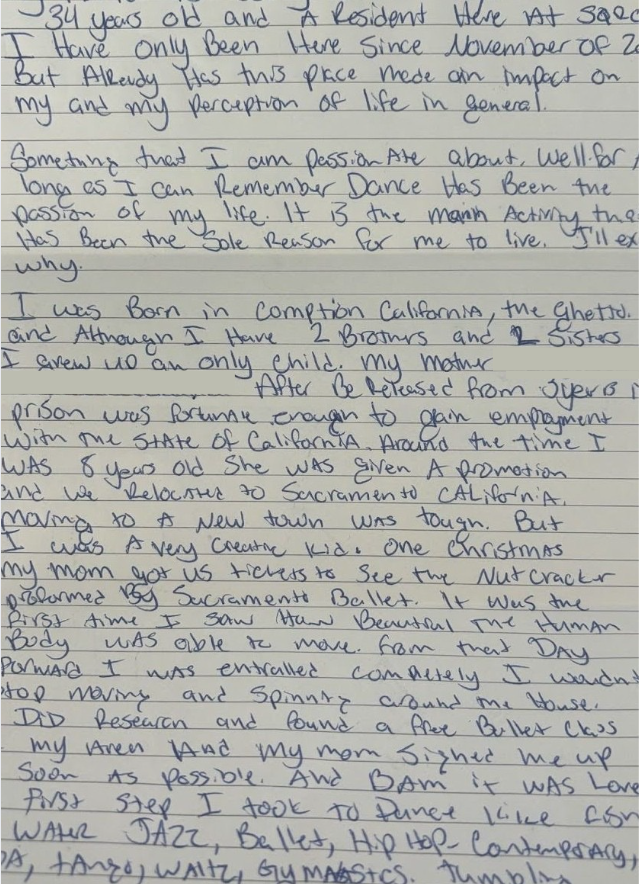 34 years old and A Resident Here At
I Have only Been Here Since November of
But Already Has this place made an impact on
my and my perception of life in general.
Something that I am passionAte about. Well for
long as I can Remember Dance Has Been the
passion of my life. It is the main Activity
Has Been the Sole Reason for me to live. I'll
why.
I was Born in Comption California, the Ghetto.
and Although I Have 2 Brothers and 2 Sisters
I grew up an only child. my mother
After Be Released from
prison was fortunate enough to gain employment
with the StAte of CaliforniA. Around the time I
WAS 8 years old She WAS given A promotion
and we Relocated to Sacramento CALiforniA.
moving to A New town WAS tough. But
I was A very Creative Kid. One Christmas
my mom got us tickets to See the Nutcracker
preformed By Sacramento Ballet. It was the
first time I saw How Beautiful The Human
Body WAS able to move. from that DAY
forward I WAS entralled completely I
moving and Spinning around the House.
DiD Research and found a free Ballet Class
my Area And my mom Signed me up
Soon As possible. And BAm it WAS Love
first Step I took to Dance like
WAter JAZZ, Ballet, Hip Hop- Contemporary,
tAngo, WAltz, Gymnastics. Tumbling